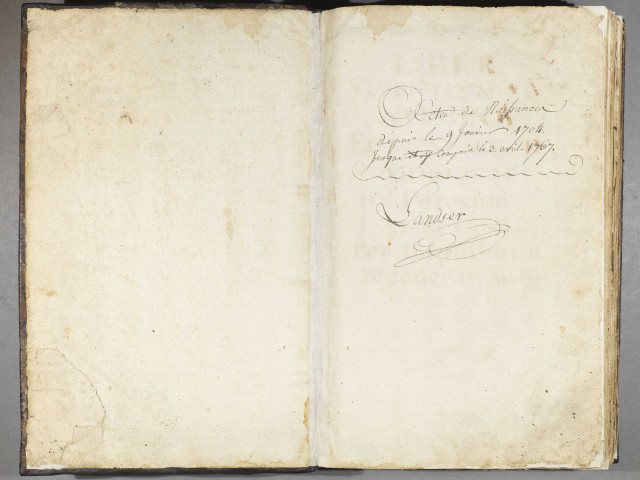 Actes de Naissances
depuis le 9 Janvier 1704.
jusque et y Compris le 3. avril 1767.
Landser